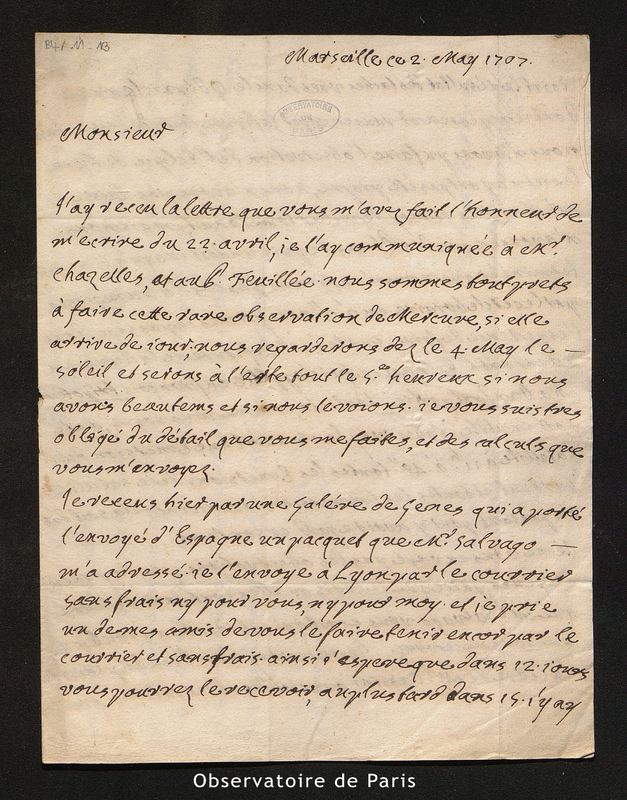 B4/11-13
Marseille ce 2. May 1707.
OBSERVATOIRE
DE
PARIS
Monsieur
J'ay receu la lettre que vous m'avez fait l'honneur de
m'ecrire du 22. avril, je l'ay communiquée à Mr.
Chazelles, et au P. Feuillée. nous sommes tout prets
à faire cette rare observation de Mercure, si elle
arrive de jour, nous regarderons dez le 4. May le —
soleil, et serons à l'erte tout le 5.e heureux si nous
avons beau tems et si nous le voions. je vous suis tres
obligé du détail que vous me faites, et des calculs que
vous m'envoyez.
Je receus hier par une Galére de Genes qui a porté
l'envoyé d'Espagne un pacquet que Mr. Salvago —
m'a adressé. je l'envoye à Lyon par le courrier
sans frais ny pour vous, ny pour moy. et je prie
un de mes amis de vous le faire tenir encor par le
courrier et sans frais. ainsi j'espere que dans 12. jours
vous pourrez le recevoir, au plus tard dans 15. j'y ay
Observatoire de Paris